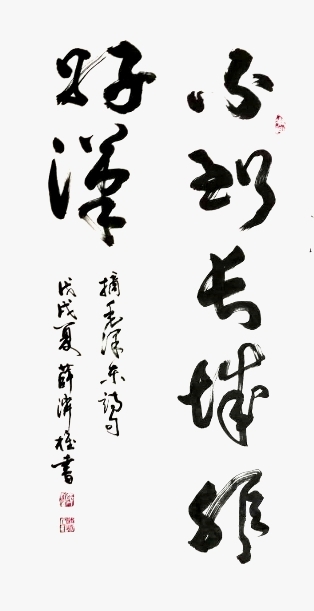 不到长城非
好汉
摘毛泽东诗句
戊戌夏薛济柱书